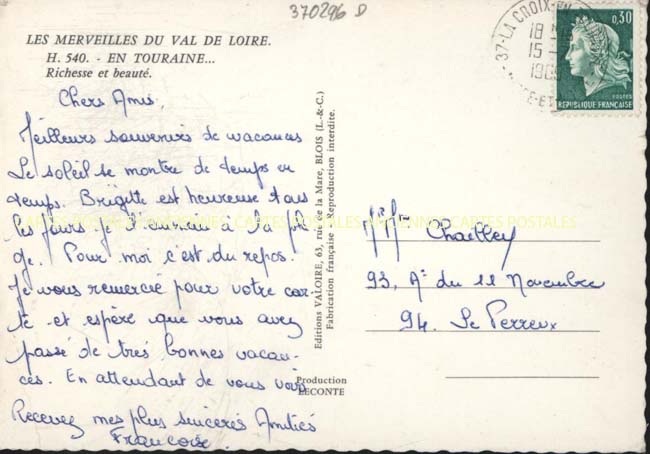 370296 D
LES MERVEILLES DU VAL DE LOIRE.
H. 540. - EN TOURAINE...
Richesse et beauté.
Chers Amis,
Meilleurs souvenirs de vacances
Le soleil se montre de temps en
temps. Brigitte est heureuse tous
les jours je l'emmène à la pla
ge. Pour moi c'est du repos.
Je vous remercie pour votre car-
te et espère que vous avez
passé de très bonnes vacan-
ces. En attendant de vous voir
Recevez mes plus sincères Amitiés
Francoise.
Editions VALOIRE, 63, rue de la Mare, BLOIS (L.-&-C.)
Fabrication française - Reproduction interdite.
Production
LECONTE
37-LA CROIX-EN-
18 H
15 -
196
-ET-
0,30
POSTES
REPUBLIQUE FRANÇAISE
Mr Mme Chailley
93, Av du 11 Novembre
94. Le Perreux
CARTES POSTALES ANCIENNES CARTES POSTALES